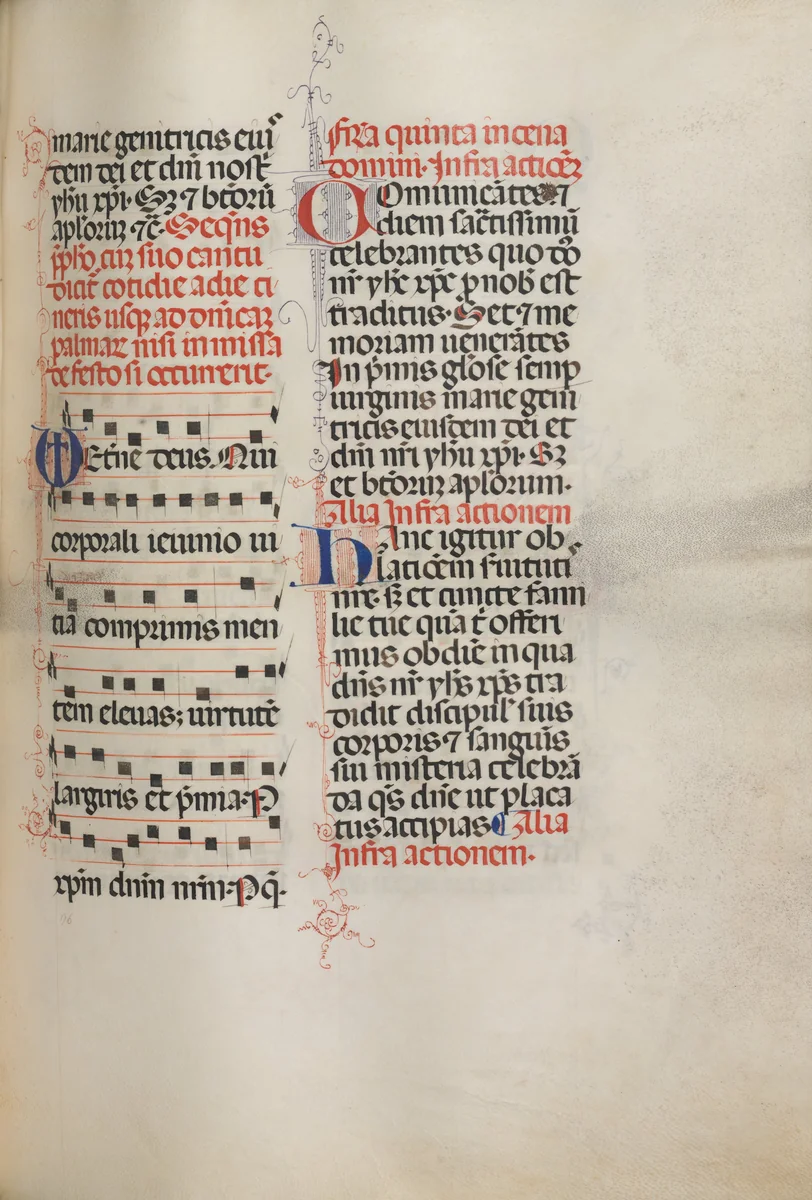 marie genitricis eiu᷒
dem dei et dn̄i nost̄
yhū xp̄i. Sꝫ ⁊ bt̄oꝝ
apl̄oꝝ ⁊c̄. Seqn̄s
p̄pho cū suo cantu
dicit̄ cotidie a die ci
neris usqꝫ ad dn̄icaꝫ
palmaꝝ nisi in missa
de festo si occurrerit.
Et̄ne deus. Qui
corporali ieiunio ui
tia comprimis men
tem eleuas; uirtutē
largiris et p̄mia. P
xp̄m dn̄m nr̄m. P q̄.
Fr̄a quinta in cena
domini. Infra actiōꝫ
Comunicātes ⁊
diem sacr̄tissimū
celebrantes quo dō
nr̄ yhc̄ xp̄c p nob est
traditus. Set ⁊ me
moriam uenerātes
In p̄mis gl̄ose semp
uirginis marie geni
tricis eiusdem dei et
dn̄i nr̄i yhū xp̄i. Sꝫ
et bt̄oꝝ apl̄orum.
Alia Infra actionem
Hanc igitur ob
latiōem s̄uituti
nr̄e. sꝫ et cuncte fami
lie tue quā t̄ offeri
mus ob diē in qua
dn̄s nr̄ yhs̄ xp̄s tra
didit discipul᷒ suis
corporis ⁊ sanguis̄
sui misteria celebrā
da qs̄ dn̄e ut placa
tus accipias. Alia
Infra actionem.
96